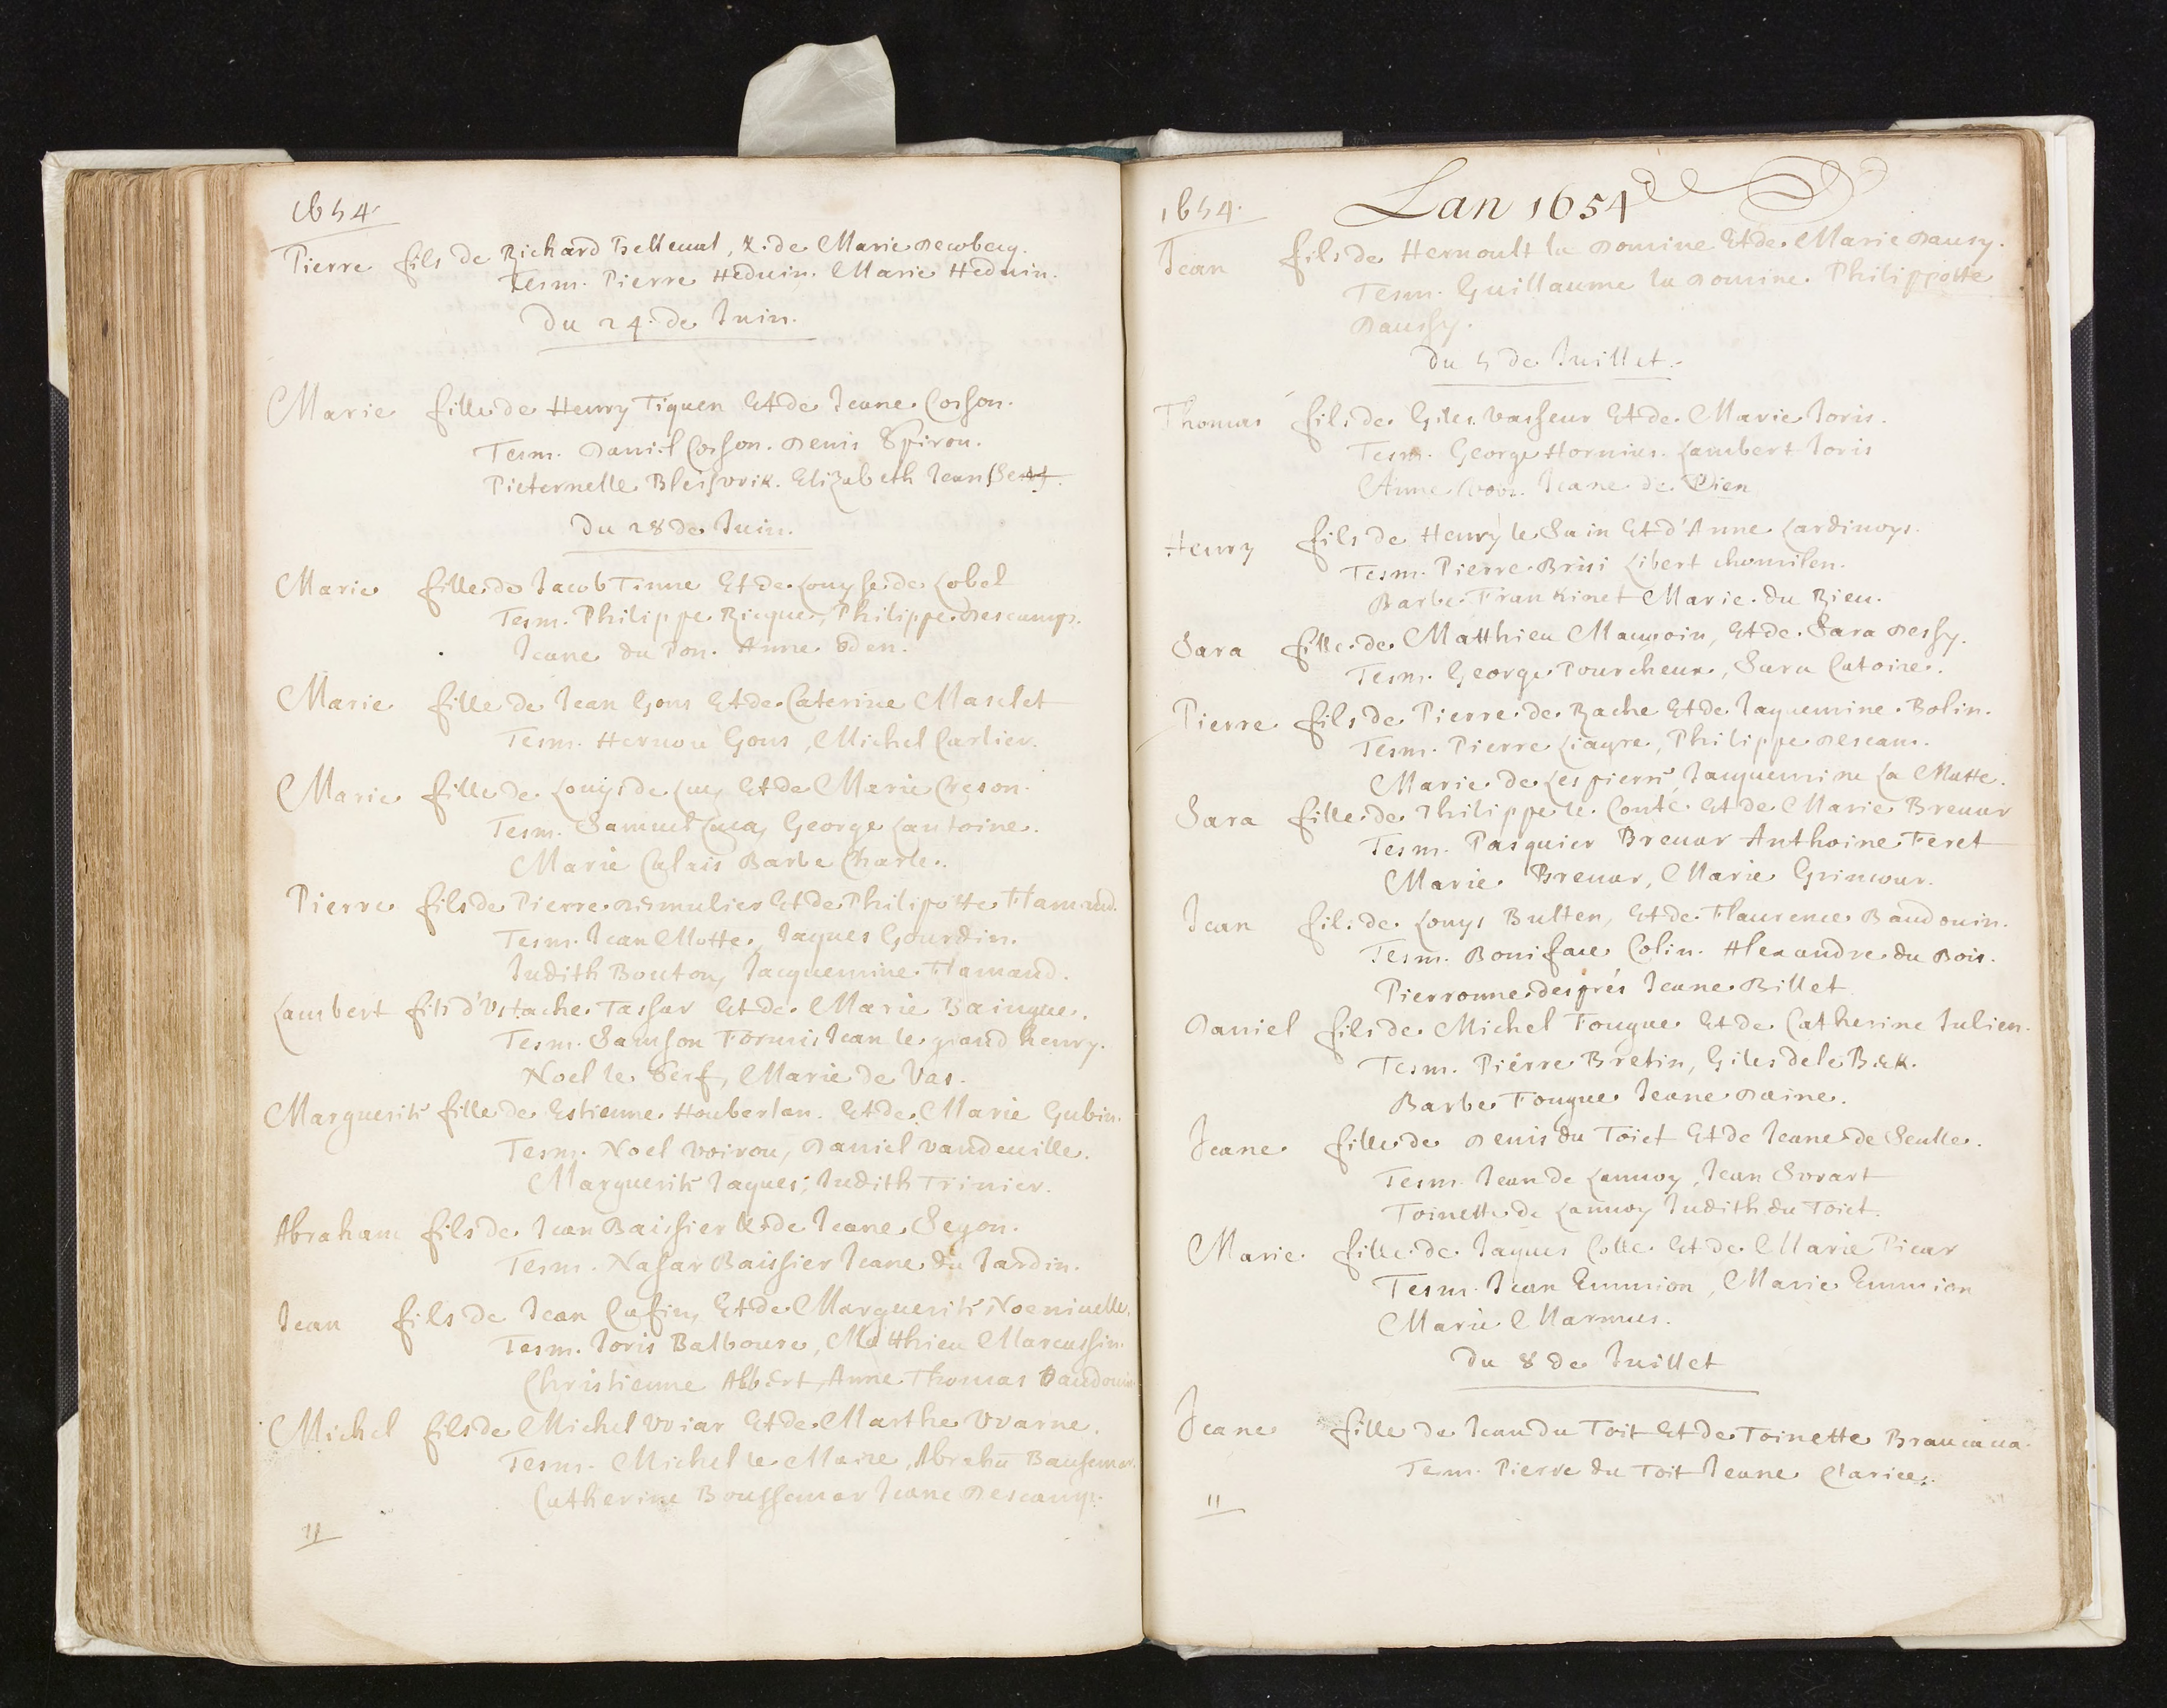 1654
Pierre fils de Richard , &. de Marie Dewberg.
Tesm. Pierre Heduin. Marie Heduin.
Du 24. de Juin.
Marie fille de Henry Tiquen Et de Jeane Cosson.
Tesm. Daniel Cosson. Denis Spirou.
Pieternelle Bleisvrik. Elizabeth
Du 28 de Juin.
Marie fille de Jacob Tinne Et de Louyse de Lobel
Tesm. Philippe Ricque, Philippe Descamps.
Jeane du Pon. Anne Oden.
Marie fille de Jean Gous Et de Caterine Masclet
Tesm. Hernou Gous, Michel Carlier.
Marie fille de Louys de Et de Marie Creson.
Tesm. Samuel George Lantoine.
Marie Calais Barbe Charle.
Pierre fils de Pierre Desmulier Et de Philipotte Flamand.
Tesm. Jean Motte, Jaques Gourdin.
Judith Bouton, Jacquemine Flamand.
Lambert fils d'Ustache Tassar Et de Marie Bainque.
Tesm. Samson Formis Jean le grand henry.
Noel le Serf, Marie de Vas.
Marguerite fille de Estienne Houberlan. Et de Marie Gubin.
Tesm. Noel Voirou, Daniel Vandeuille.
Marguerite Jaques, Judith Trinier.
Abraham fils de Jean Baissier & de Jeane Segon.
Tesm. Nasar Baissier Jeane du Jardin.
Jean fils de Jean Cafin, Et de Marguerite
Tesm. Joris Balboure, Matthieu Marcassin.
Christienne Albert, Anne Thomas Baudouin
Michel fils de Michel Wiar Et de Marthe Warne.
Tesm. Michel le Maire, Abrahā
Catherine Boussemar Jeane Descamps.
11
1654.
Lan 1654
Jean fils de Hernoult la Domine Et de Marie Dausy.
Tesm. Guillaume la Domine. Philippotte
Daussy.
Du 5 de Juillet.
Thomas fils de Giles Vasseur Et de Marie Joris.
Tesm. George Hornius. Lambert Joris
Anne Jeane de Dien
Henry fils de Henry le Sain Et d'Anne Lardinoys.
Tesm. Pierre Brisi Libert
Barbe Frankinet Marie du Rieu.
Sara fille de Matthieu Et de Sara Dessy.
Tesm. George Pourcheur, Sara Catoire.
Pierre fils de Pierre de Bache Et de Jaquemine Bolin.
Tesm. Pierre Liagre, Philippe Descam.
Marie de Lespierre, Jacquemine La Matte.
Sara fille de Philippe le Conte Et de Marie Breuar
Tesm. Pasquier Breuar Anthoine Feret
Marie Breuar, Marie
Jean fils de Louys Bulten, Et de Flaurence Baudouin.
Tesm. Boniface Colin. Alexandre du Bois.
Pierronne desprès Jeane Billet
Daniel fils de Michel Fouque Et de Catherine Julien.
Tesm. Pierre Bretin, Giles dele Bek.
Barbe Fouque Jeane Daine.
Jeane fille de Denis du Toict Et de Jeane de Seulle.
Tesm. Jean de Lannoy, Jean Sorart
Toinette de Lannoy Judith du Toict.
Marie fille de Jaques Colle Et de Marie Picar
Tesm. Jean Emmion, Marie Emmion
Marie Marmus.
Du 8 de Juillet
Jeane fille de Jean du Toit Et de Toinette
Tesm. Pierre du Toit Jeane Clarice.
11